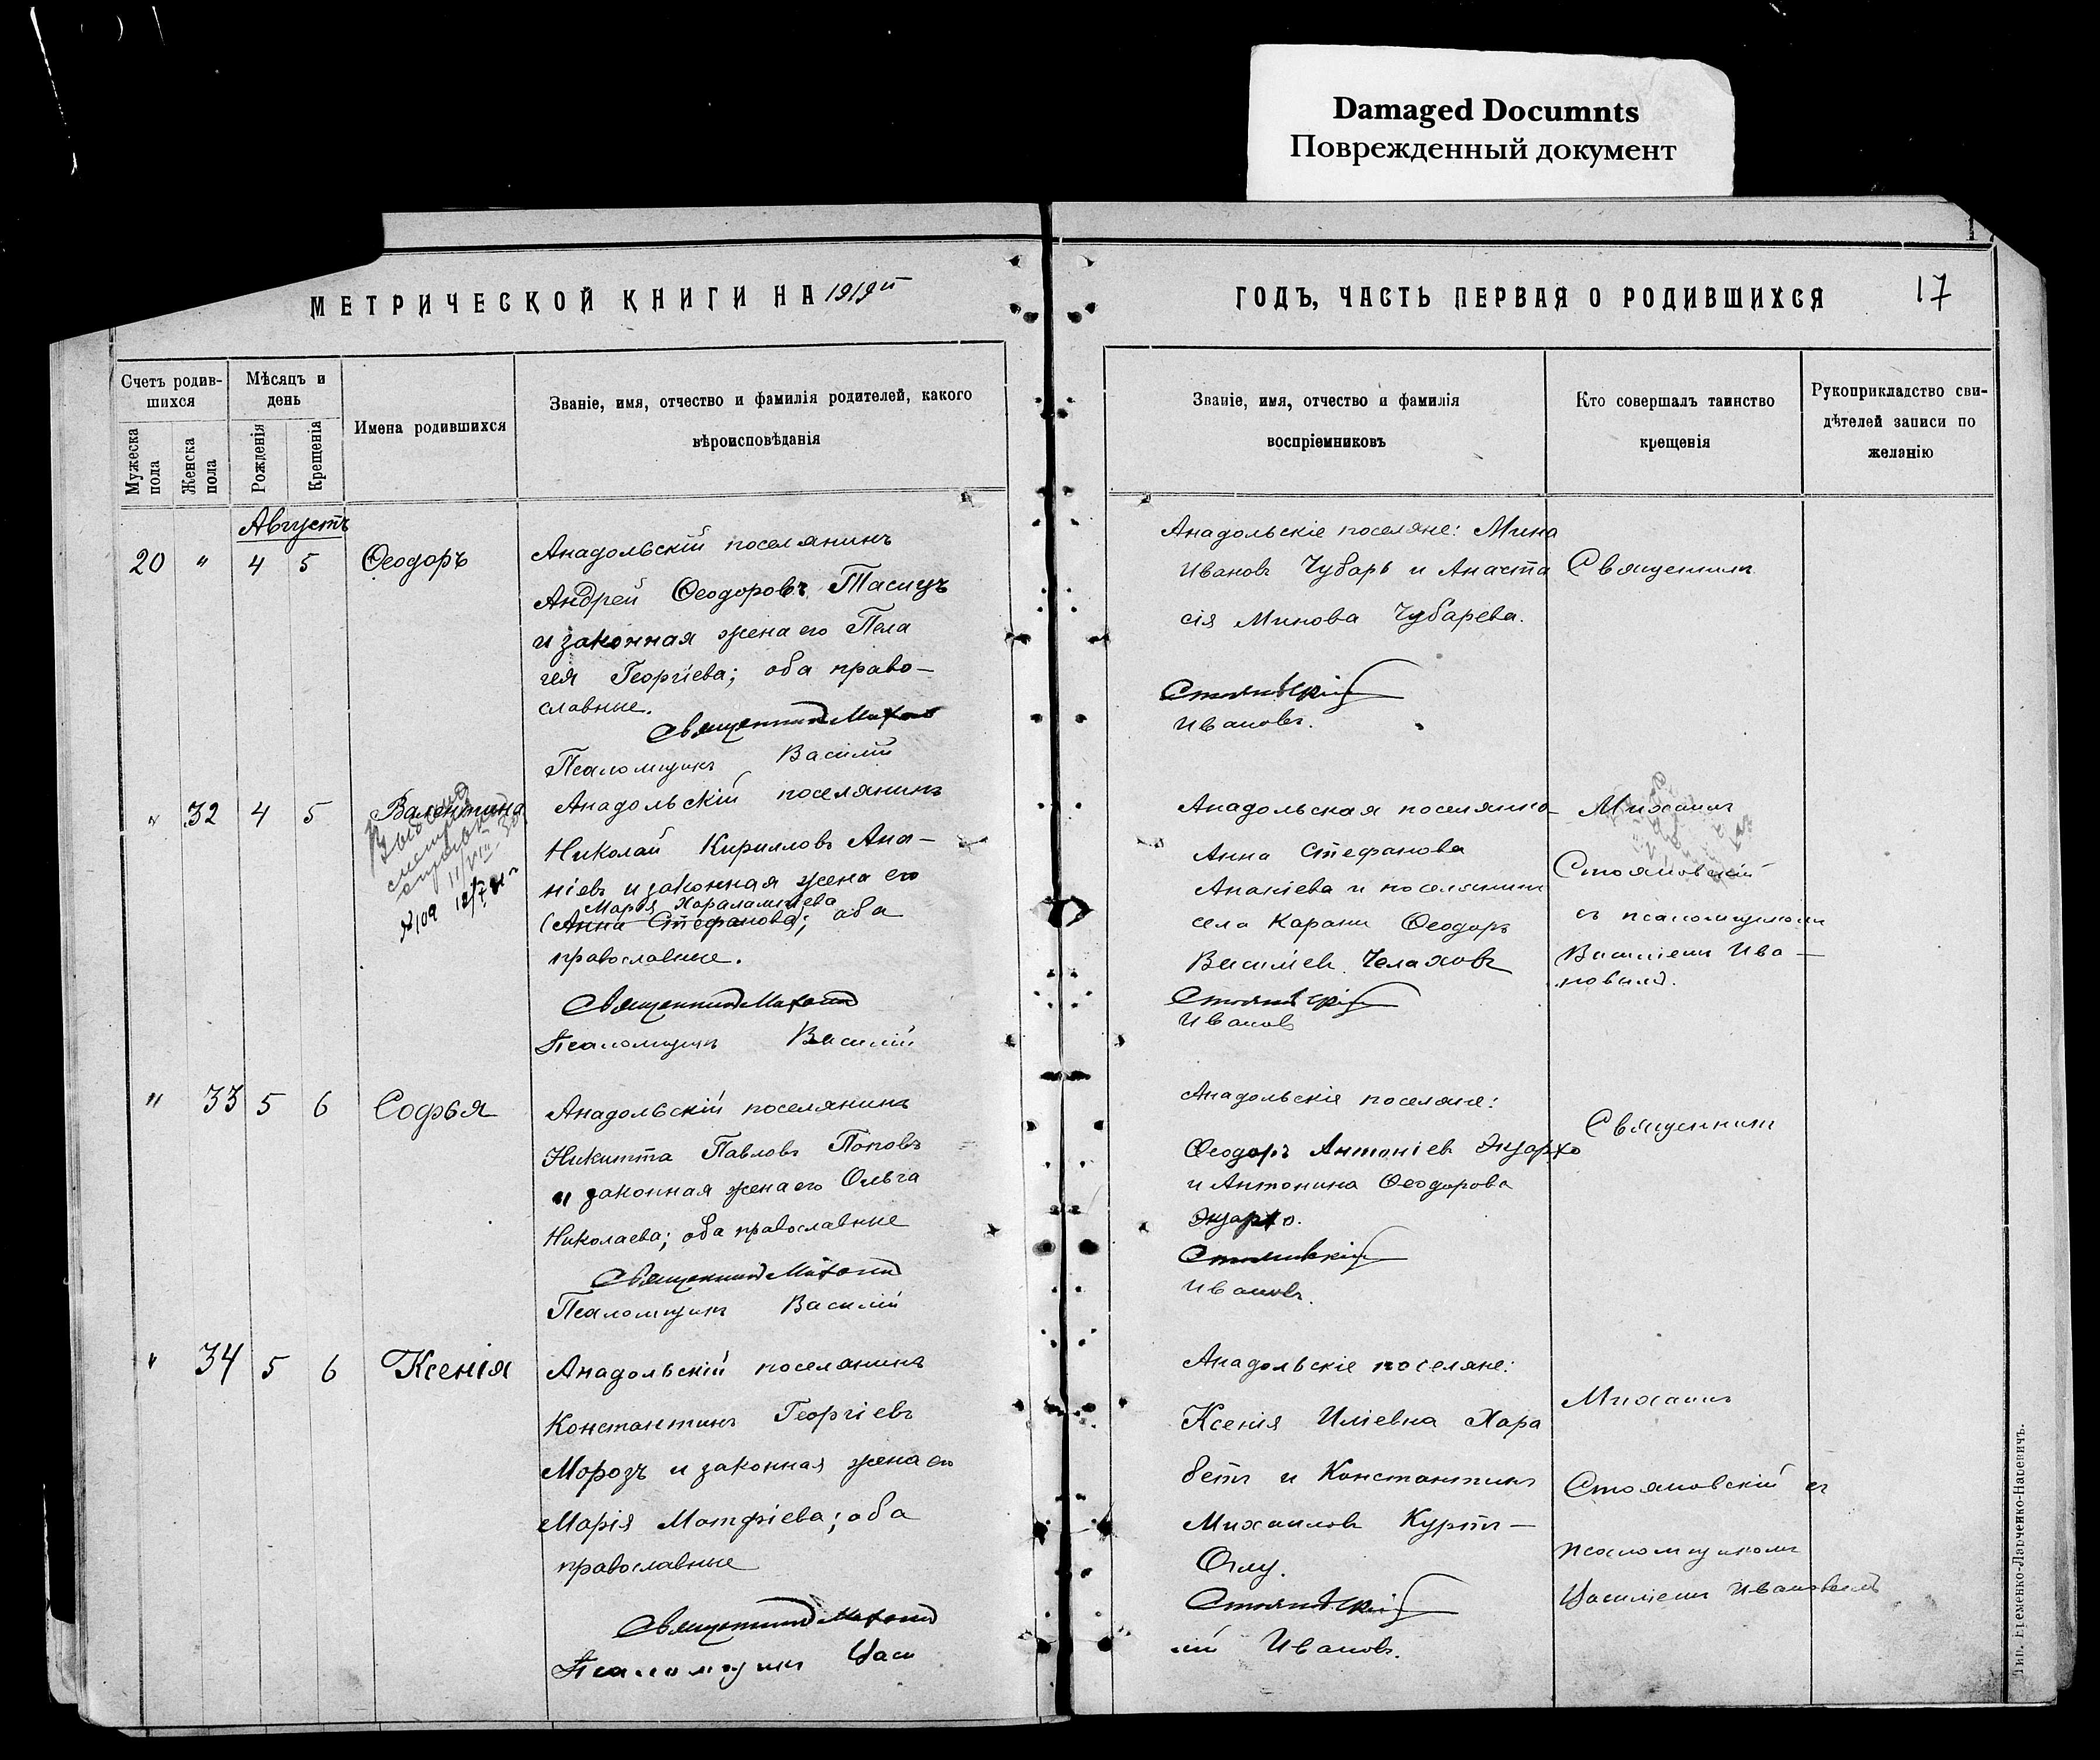 Damaged Documnts
Поврежденный документ
МЕТРИЧЕСКОЙ КНИГИ НА 1919й
ГОДЪ, ЧАСТЬ ПЕРВАЯ О РОДИВШИХСЯ
17
Счетъ родив-
шихся
Мужеска
пола
Женска
пола
Мѣсяцъ и
день
Рожденія
Крещенія
Имена родившихся
Званіе, имя, отчество и фамилія родителей, какого
вѣроисповѣданія
Званіе, имя, отчество и фамилія
воспріемниковъ
Кто совершалъ таинство
крещенія
Рукоприкладство сви-
дѣтелей записи по
желанію
Августъ
20 " 4 5 Ѳеодоръ
Анадольскій поселянинъ
Андрей Ѳеодоровъ Тасицъ
и законная жена его Пела
гея Георгіева; оба право-
славные.
Священникъ Михаилъ
Псаломщикъ Василій
Анадольскіе поселяне: Мина
Ивановъ Чубарь и Анаста
сія Минова Чубарева.
Стояновскій
Ивановъ.
Священникъ
" 32 4 5 Валентина
№109
Анадольскій поселянинъ
Николай Кирилловъ Ана-
ніевъ и законная жена его
Марія Харалампіева
(Анна Стефанова; оба
православные.
Священникъ Михаилъ
Псаломщикъ Василій
Анадольская поселянка
Анна Стефанова
Ананіева и поселянинъ
села Карани Ѳеодоръ
Василіевъ Челаховъ
Стояновскій
Ивановъ
Михаилъ
Стояновскій
съ псаломщикомъ
Василіемъ Ива-
новымъ.
" 33 5 6 Софья
Анадольскій поселянинъ
Никитта Павловъ Поповъ
и законная жена его Ольга
Николаева; оба православные
Священникъ Михаилъ
Псаломщикъ Василій
Анадольскіе поселяне:
Ѳеодоръ Антоніевъ Экзархо
и Антонина Ѳеодорова
Экзархо.
Стояновскій
Ивановъ.
Священникъ
" 34 5 6 Ксенія
Анадольскій поселянинъ
Константинъ Георгіевъ
Морозъ и законная жена его
Марія Матфіева; оба
православные
Священникъ Михаилъ
Псаломщикъ Васи
Анадольскіе поселяне:
Ксенія Иліевна Хара
бетъ и Константинъ
Михаиловъ Куртъ-
Оглу.
Стояновскій
лій Ивановъ.
Михаилъ
Стояновскій съ
псаломщикомъ
Василіемъ Ивановымъ
Тип. Еременко-Ларченко-Наревичъ.